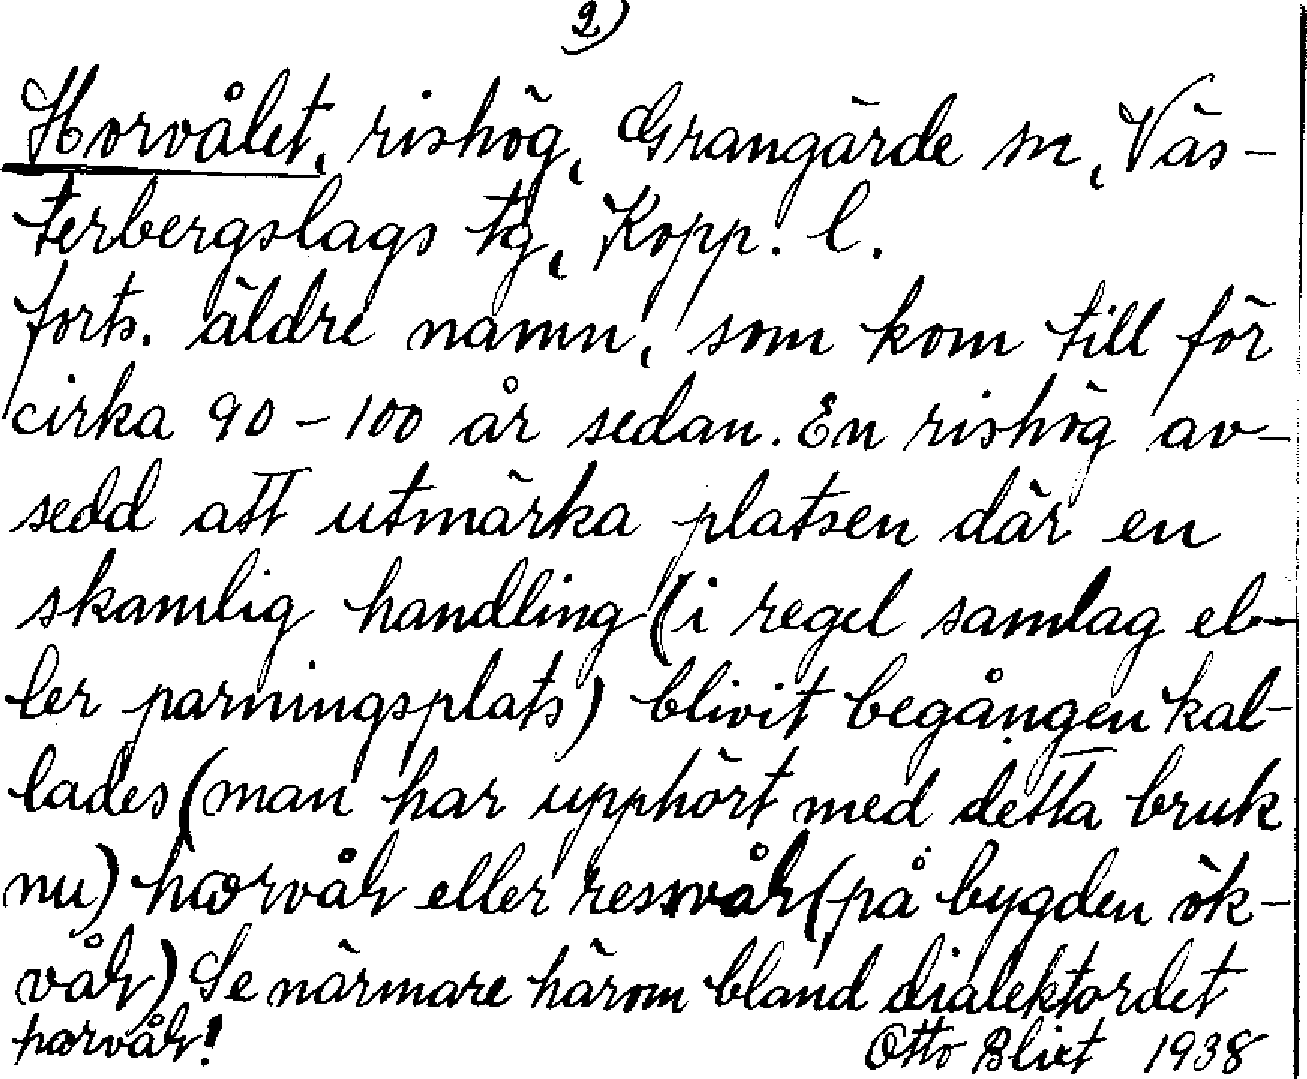 2)
Horvålet, rishög, Grangärde sn, Väs-
terbergslags tg, Kopp. l.
forts. äldre namn, som kom till för
cirka 90-100 år sedan. En rishög av-
sedd att utmärka platsen där en
skamlig handling (i regel samlag el-
ler parningsplats) blivit begången kal-
lades (man har upphört med detta bruk
nu) horvål eller resvål (på bygden ök-
vål) Se närmare härom bland dialektordet
horvål!
Otto Blixt 1938